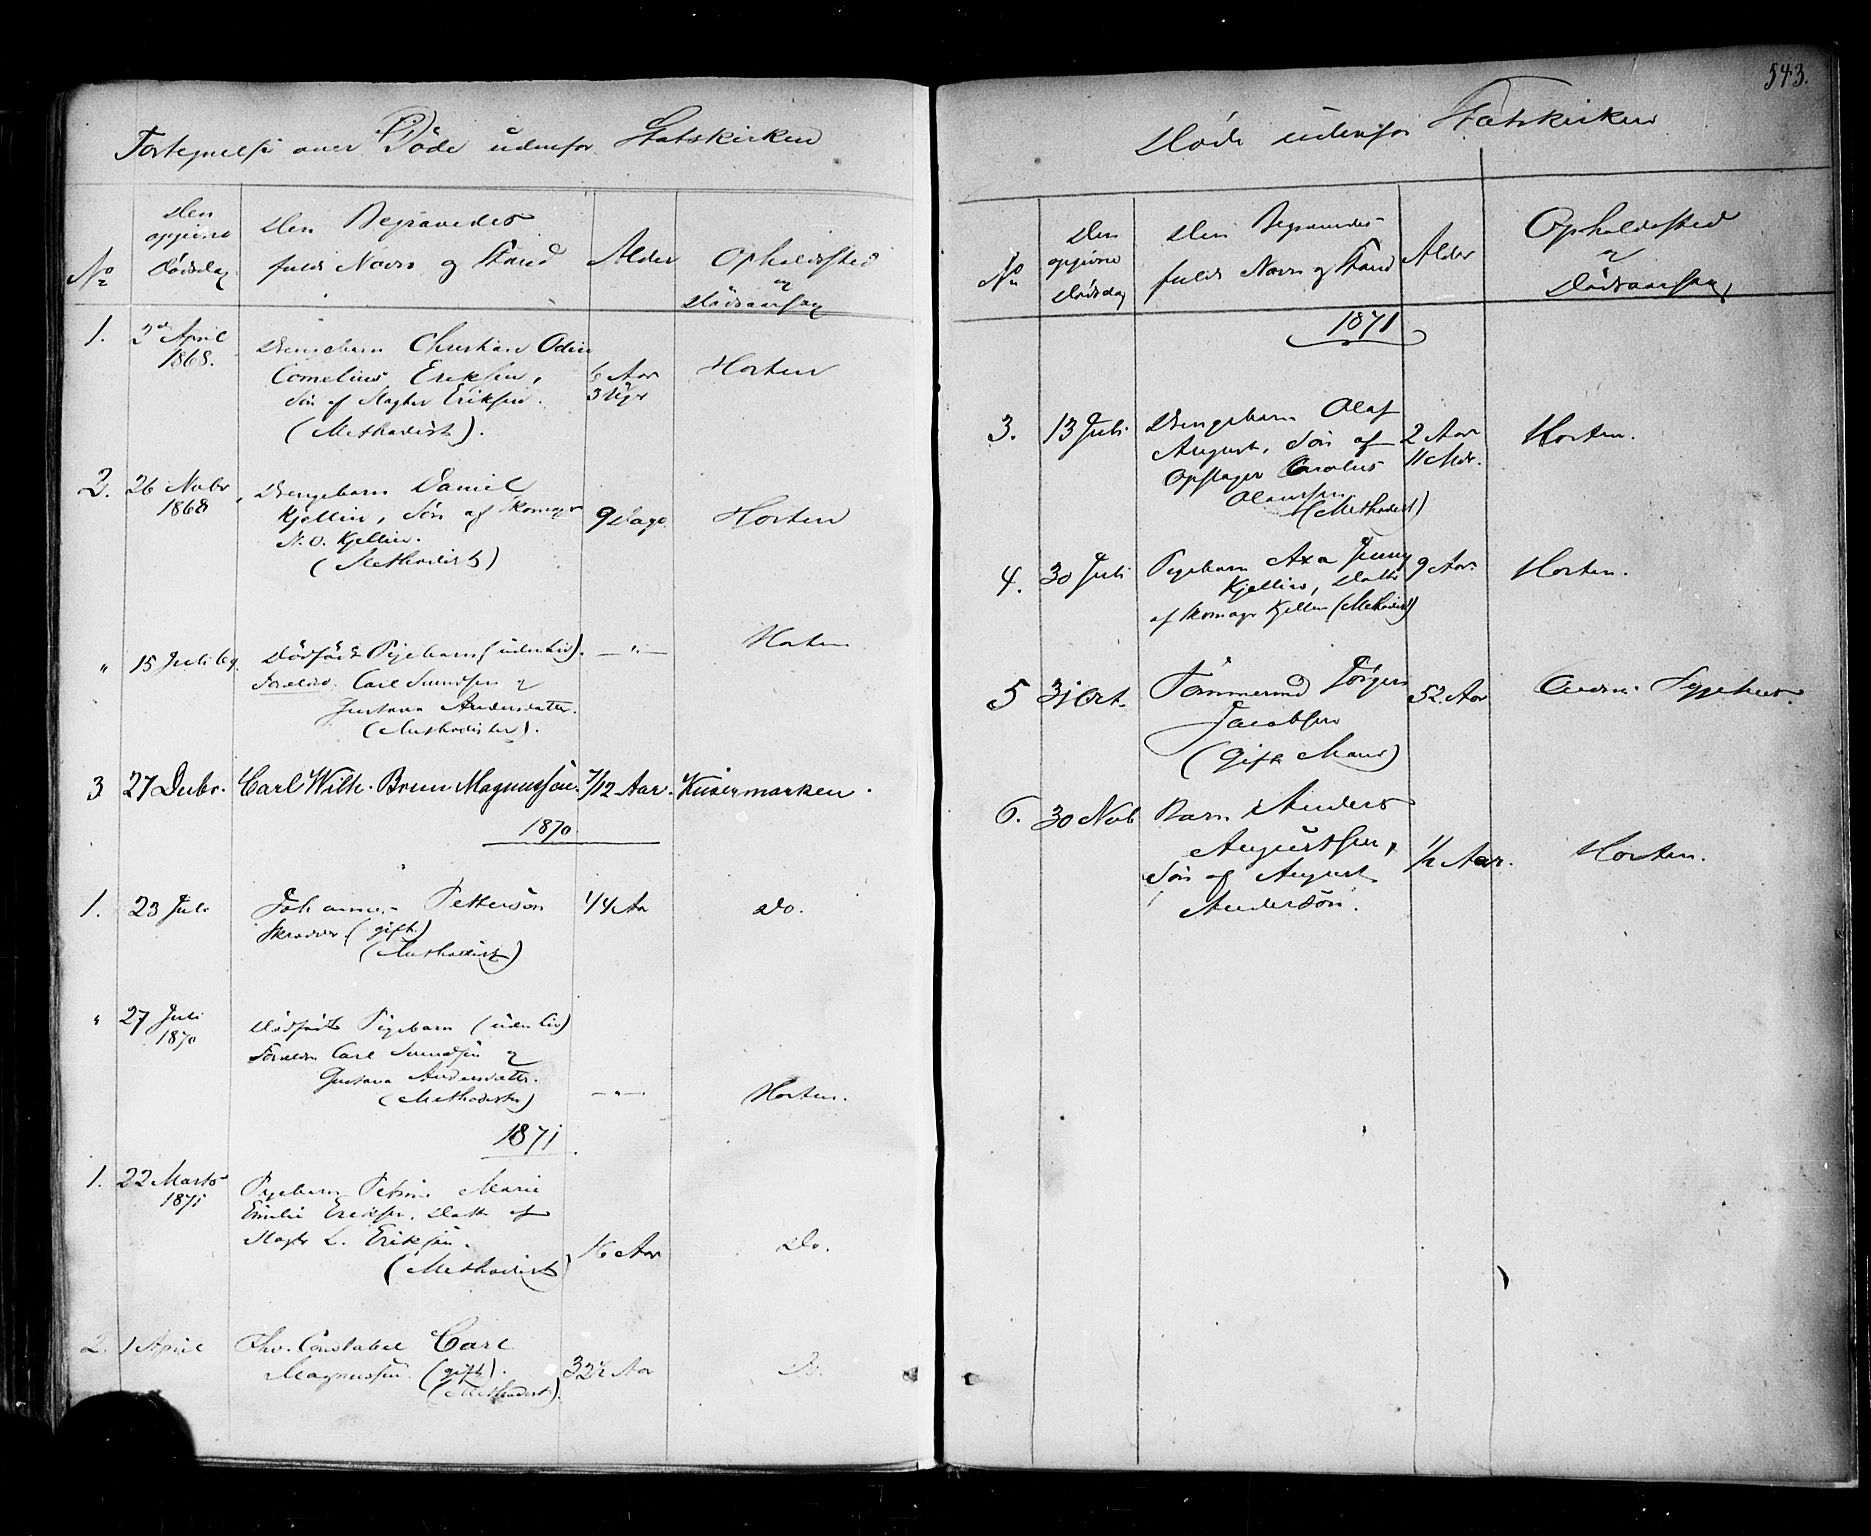 Fortegnelse over Døde udenfor Statskirken
No
Den opgivne Dødsdag
Den Begravedes fulde Navn og Stand
Alder
Opholdssted og Dødsaarsag
1. 2den April 1868.
Drengebarn Christian Odin
Cornelius Eriksen,
Søn af Slagter Eriksen.
(Methodist).
Aar 3 Uger
Horten
2. 26 Novbr 1868
Drengebarn Daniel
Kjellin, Søn af Skomager
N. O. Kjellin.
(Methodist)
9 Dage
Horten
" 15 Juli 69
Dødfødt Pigebarn (uden Liv).
Forældre Carl Svendsen og
Gustava Andersdatter.
(Methodister).
— " —
Horten
3 27 Decbr. Carl Wilh. Bruun Magnussøn. 7/12 Aar.
1870
1. 23 Juli
Johannes Pettersøn
Skrædder (gift)
(Methodist)
44 Aar
Do.
" 27 Juli 1870
Dødfødt Pigebarn (uden Liv)
Forældre Carl Svendsen og
Gustava Andersdatter.
(Methodister)
— " —
Horten.
1871
1. 22 Marts 1871
Pigebarn Petrine Marie
Emilie Eriksen, Datter af
Slagter L. Eriksen.
(Methodist)
Aar
Do.
2. 1 April
Constabel Carl
Magnussen (gift).
(Methodist).
32½ Aar
Do.
543.
Døde udenfor Statskirken
No
Den opgivne Dødsdag
Den Begravedes fulde Navn og Stand
Alder
Opholdssted og Dødsaarsag
1871
3. 13 Juli
Drengebarn Olaf
August, Søn af
Opsager Carolus
Olaussen
(Methodist)
2 Aar 11 Mdr.
Horten.
4. 30 Juli
Pigebarn Axa Jenny
Kjellin, Datter
af Skomager Kjellin (Methodist)
9 Aar
Horten.
5 31 Oct.
Tømmermand Jørgen
Jacobsen
(gift Mand)
52 Aar
6. 30 Nov
Barn Anders
Augustsen,
Søn af August
Andersøn.
1/2 Aar.
Horten.